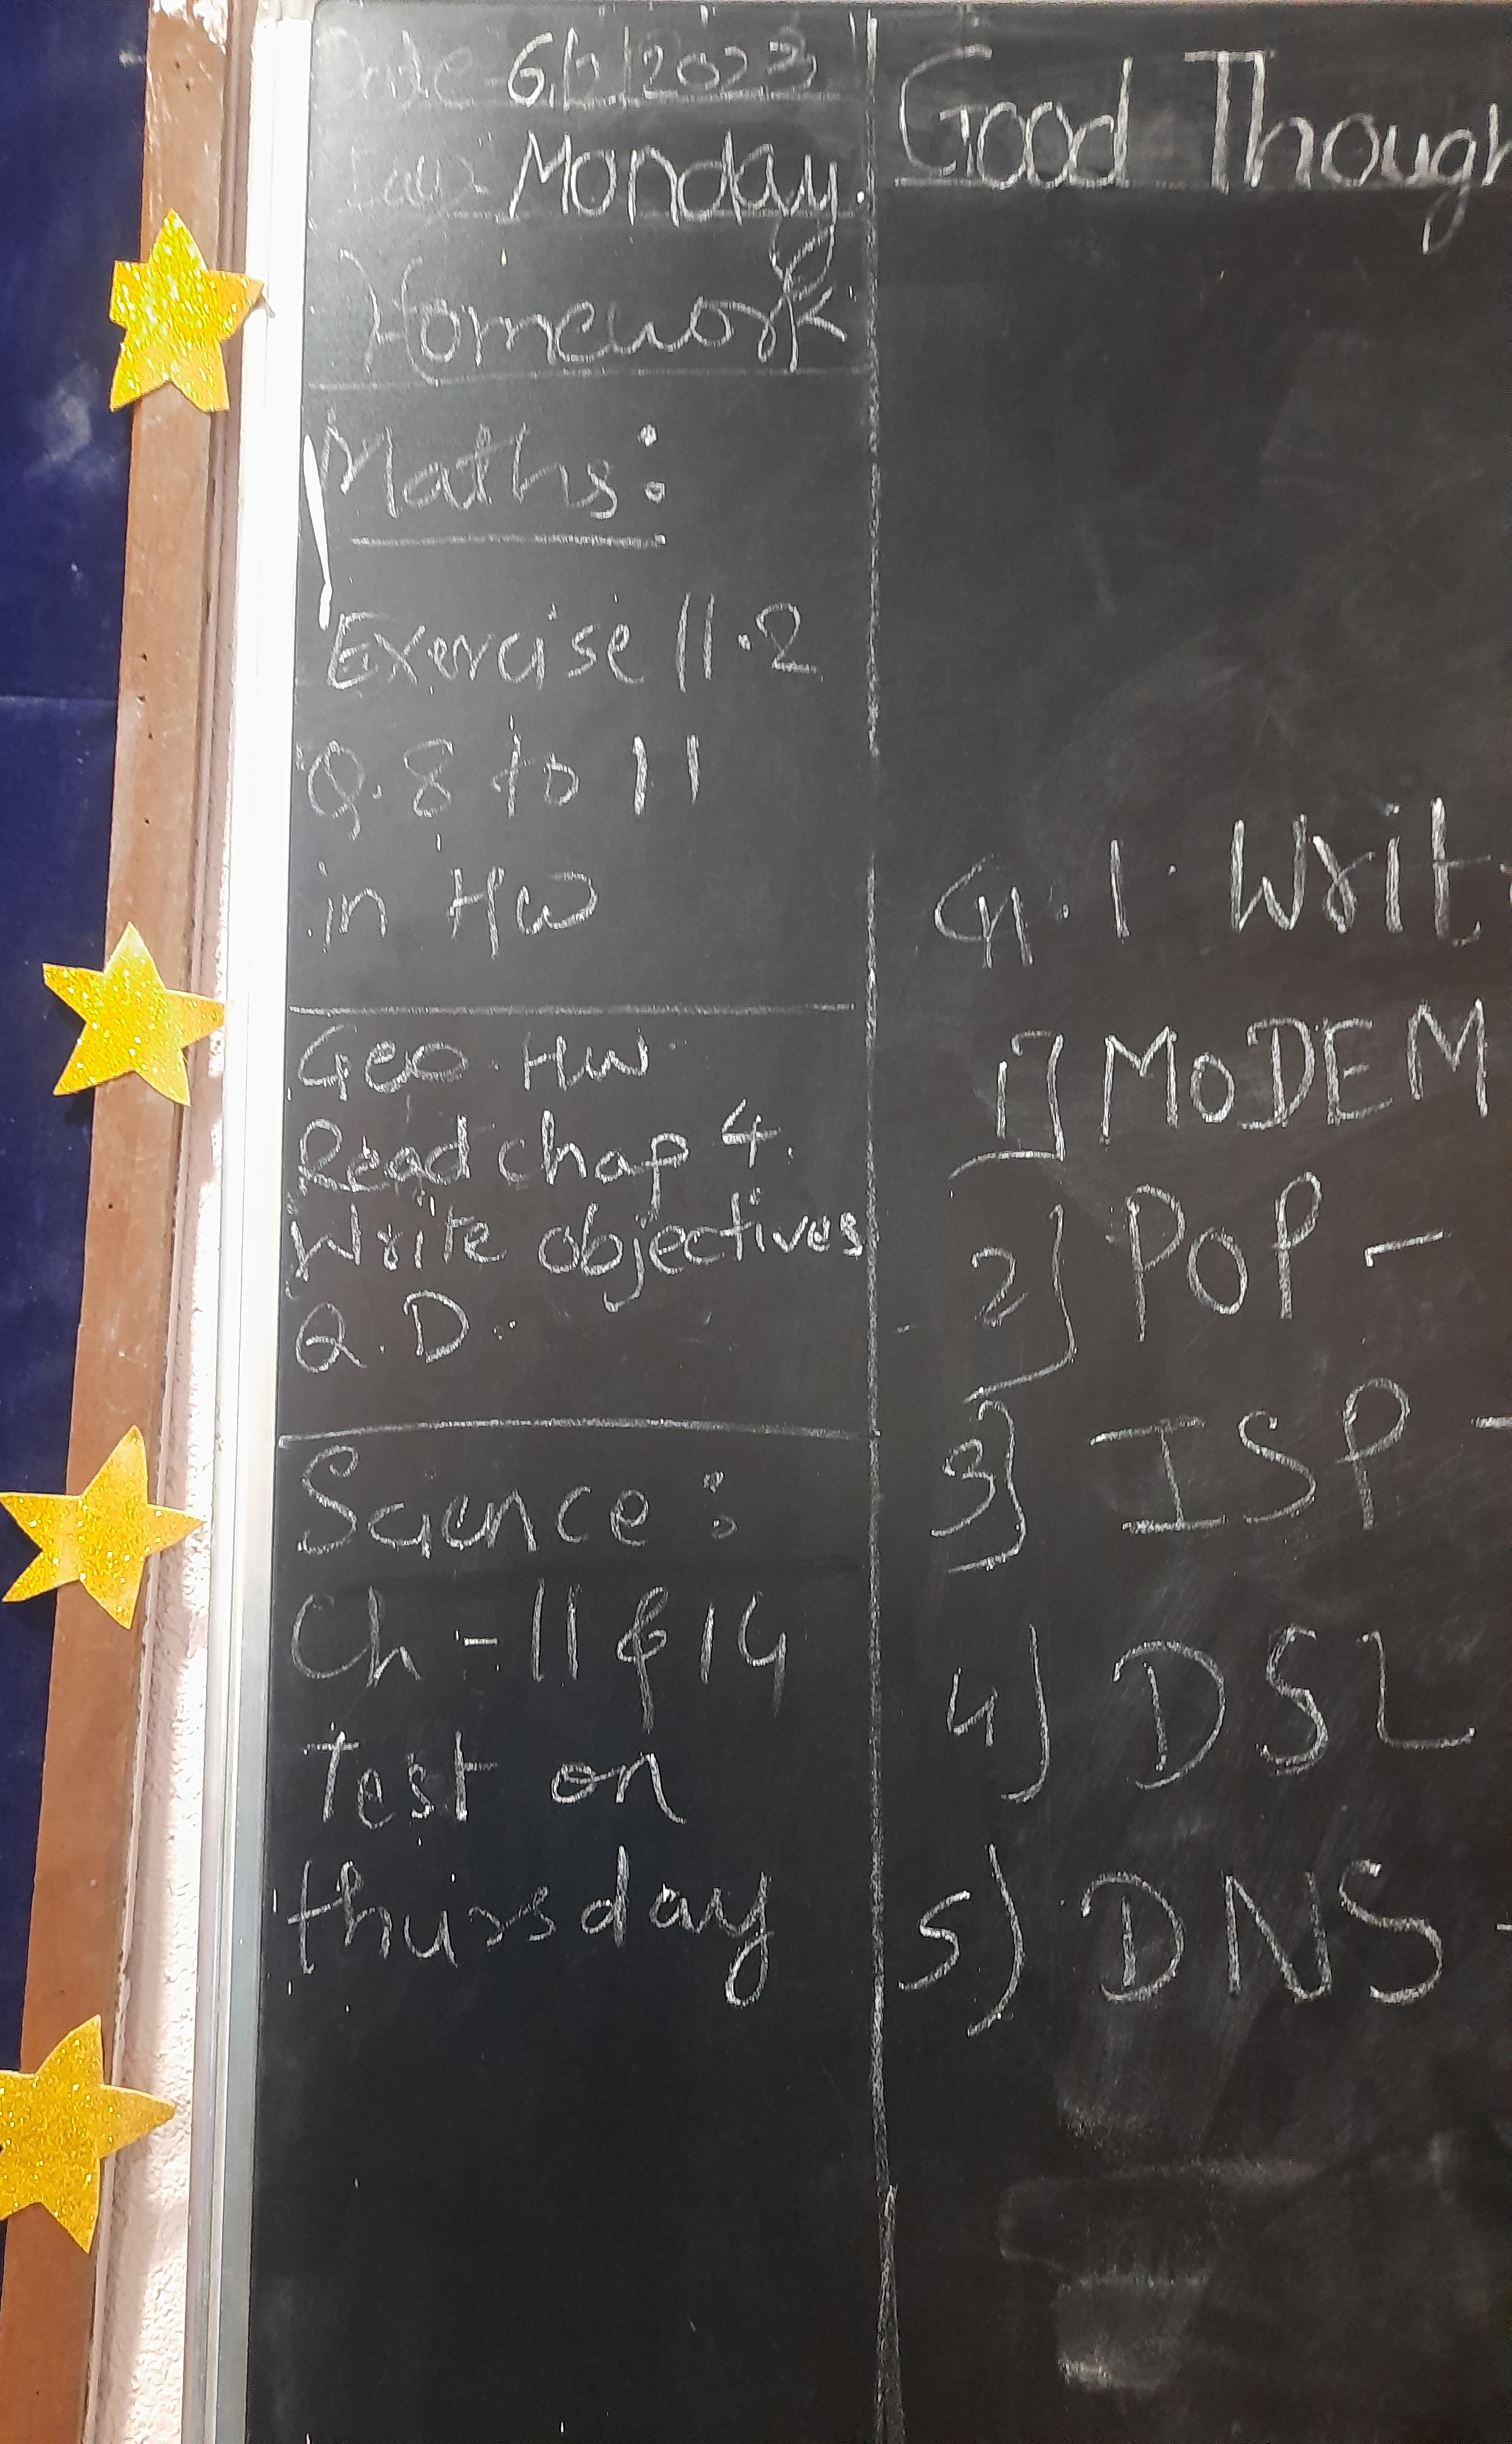 Date - 6/2/2023
Day - Monday.
Homework
Maths:
Exercise 11.2
Q.8 to 11
in HW
Geo HW
Read chap 4.
Write objectives
Q.D.
Science:
Ch - 11 & 14
Test on
thursday
Good Though
Q.1. Writ
1] MODEM
2] POP -
3] ISP -
4) DSL
5) DNS -